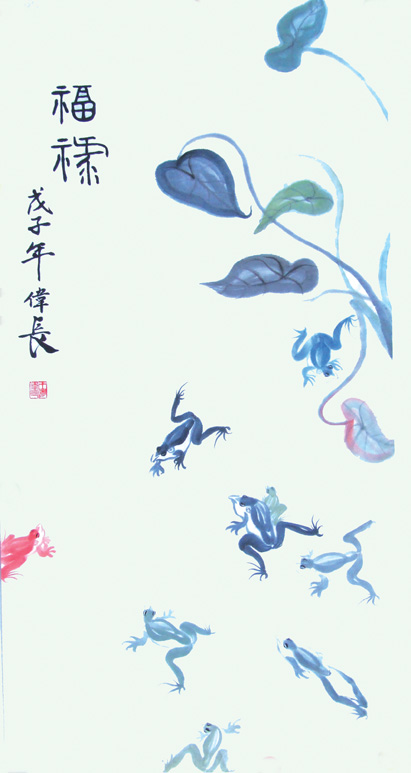 福祿
戊子年偉長